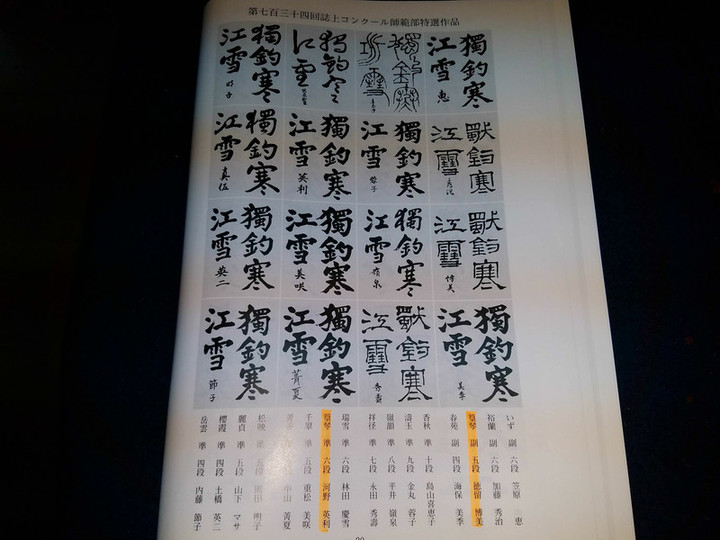 第七百三十四回誌上コンクール師範部特選作品
獨釣寒
江雪
惠
獨釣寒
江雪
獨釣寒
江雪
獨釣寒
江雪
明子
獨釣寒
江雪
獨釣寒
江雪
蓉子
獨釣寒
江雪
英利
獨釣寒
江雪
真佐
獨釣寒
江雪
博美
獨釣寒
江雪
嶺泉
獨釣寒
江雪
美咲
獨釣寒
江雪
英二
獨釣寒
江雪
美季
獨釣寒
江雪
秀壽
獨釣寒
江雪
菁夏
獨釣寒
江雪
節子
いず 副 六段 笠原 恵
裕蘭 副 六段 加藤 秀治
琴 副 五段 徳留 博美
春苑 副 四段 海保 美季
香秋 準 十段 島山喜恵子
濤玉 準 九段 金丸 蓉子
嶺韻 準 八段 平井 嶺泉
祥径 準 七段 永田 秀壽
瑞雪 準 六段 林田 慶雪
琴 準 六段 河野 英利
千翠 準 五段 重松 美咲
山 菁夏
松映 準 五段 田 明子
麗貞 準 五段 山下 マサ
櫻霞 準 四段 土橋 英二
岳雲 準 四段 内藤 節子